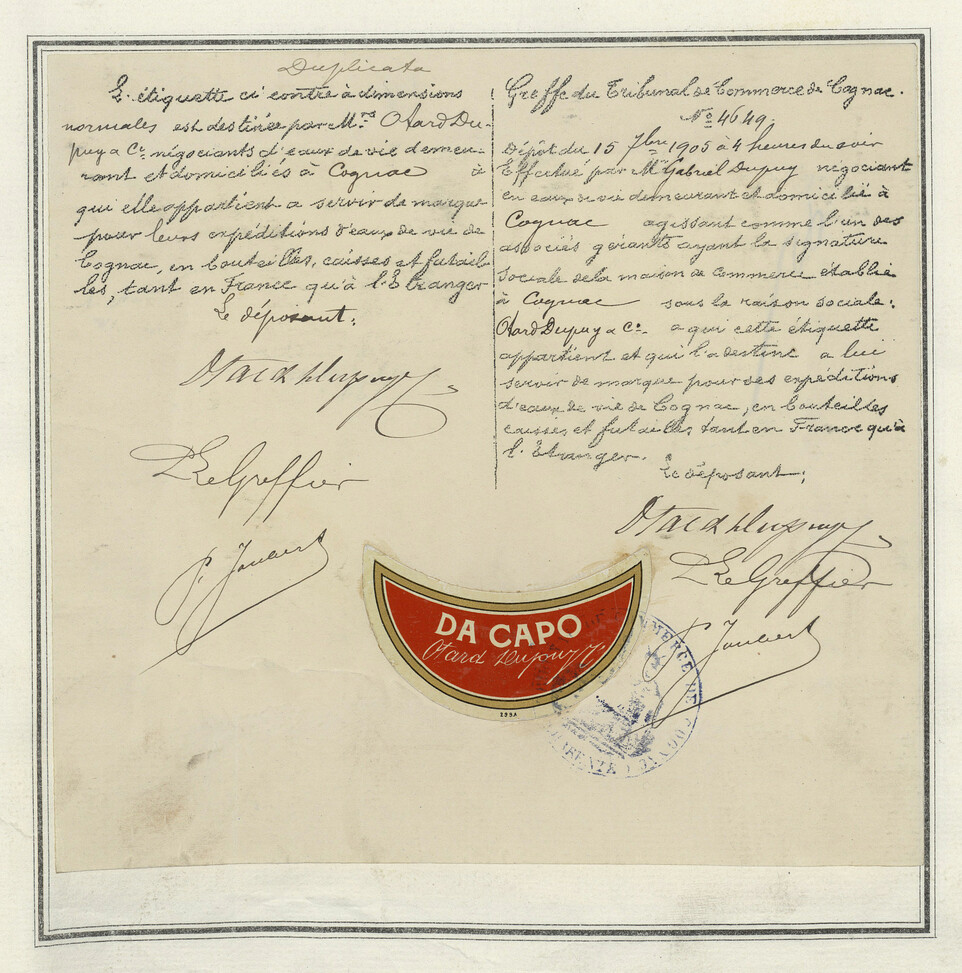 Duplicata
L'étiquette ci contre à dimensions
normales est destinée par Mrs Otard Du-
puy & Co négociants d'eaux de vie demeu-
rant et domiciliés à Cognac à
qui elle appartient a servir de marque
pour leurs expéditions d'eaux de vie de
Cognac, en bouteilles, caisses et futail-
les, tant en France qu'à l'Étranger
Le déposant:
Otard Dupuy &
Le Greffier
P. Joubert
Greffe du Tribunal de Commerce de Cognac.
No 4649.
Dépôt du 15 7bre 1905 à 4 heures du soir
Effectué par Mr Gabriel Dupuy négociant
en eaux de vie demeurant et domicilié à
Cognac agissant comme l'un des
associés gérants ayant la signature
sociale de la maison de commerce établie
à Cognac sous la raison sociale:
Otard Dupuy & Co. a qui cette étiquette
appartient et qui l'a destine a lui
servir de marque pour ses expéditions
d'eaux de vie de Cognac, en bouteilles
caisses et futailles tant en France qu'à
l'Étranger.
Le déposant:
Otard Dupuy &
Le Greffier
P. Joubert
DA CAPO
Otard Dupuy &
COMMERCE DE COGNAC
CHARENTE